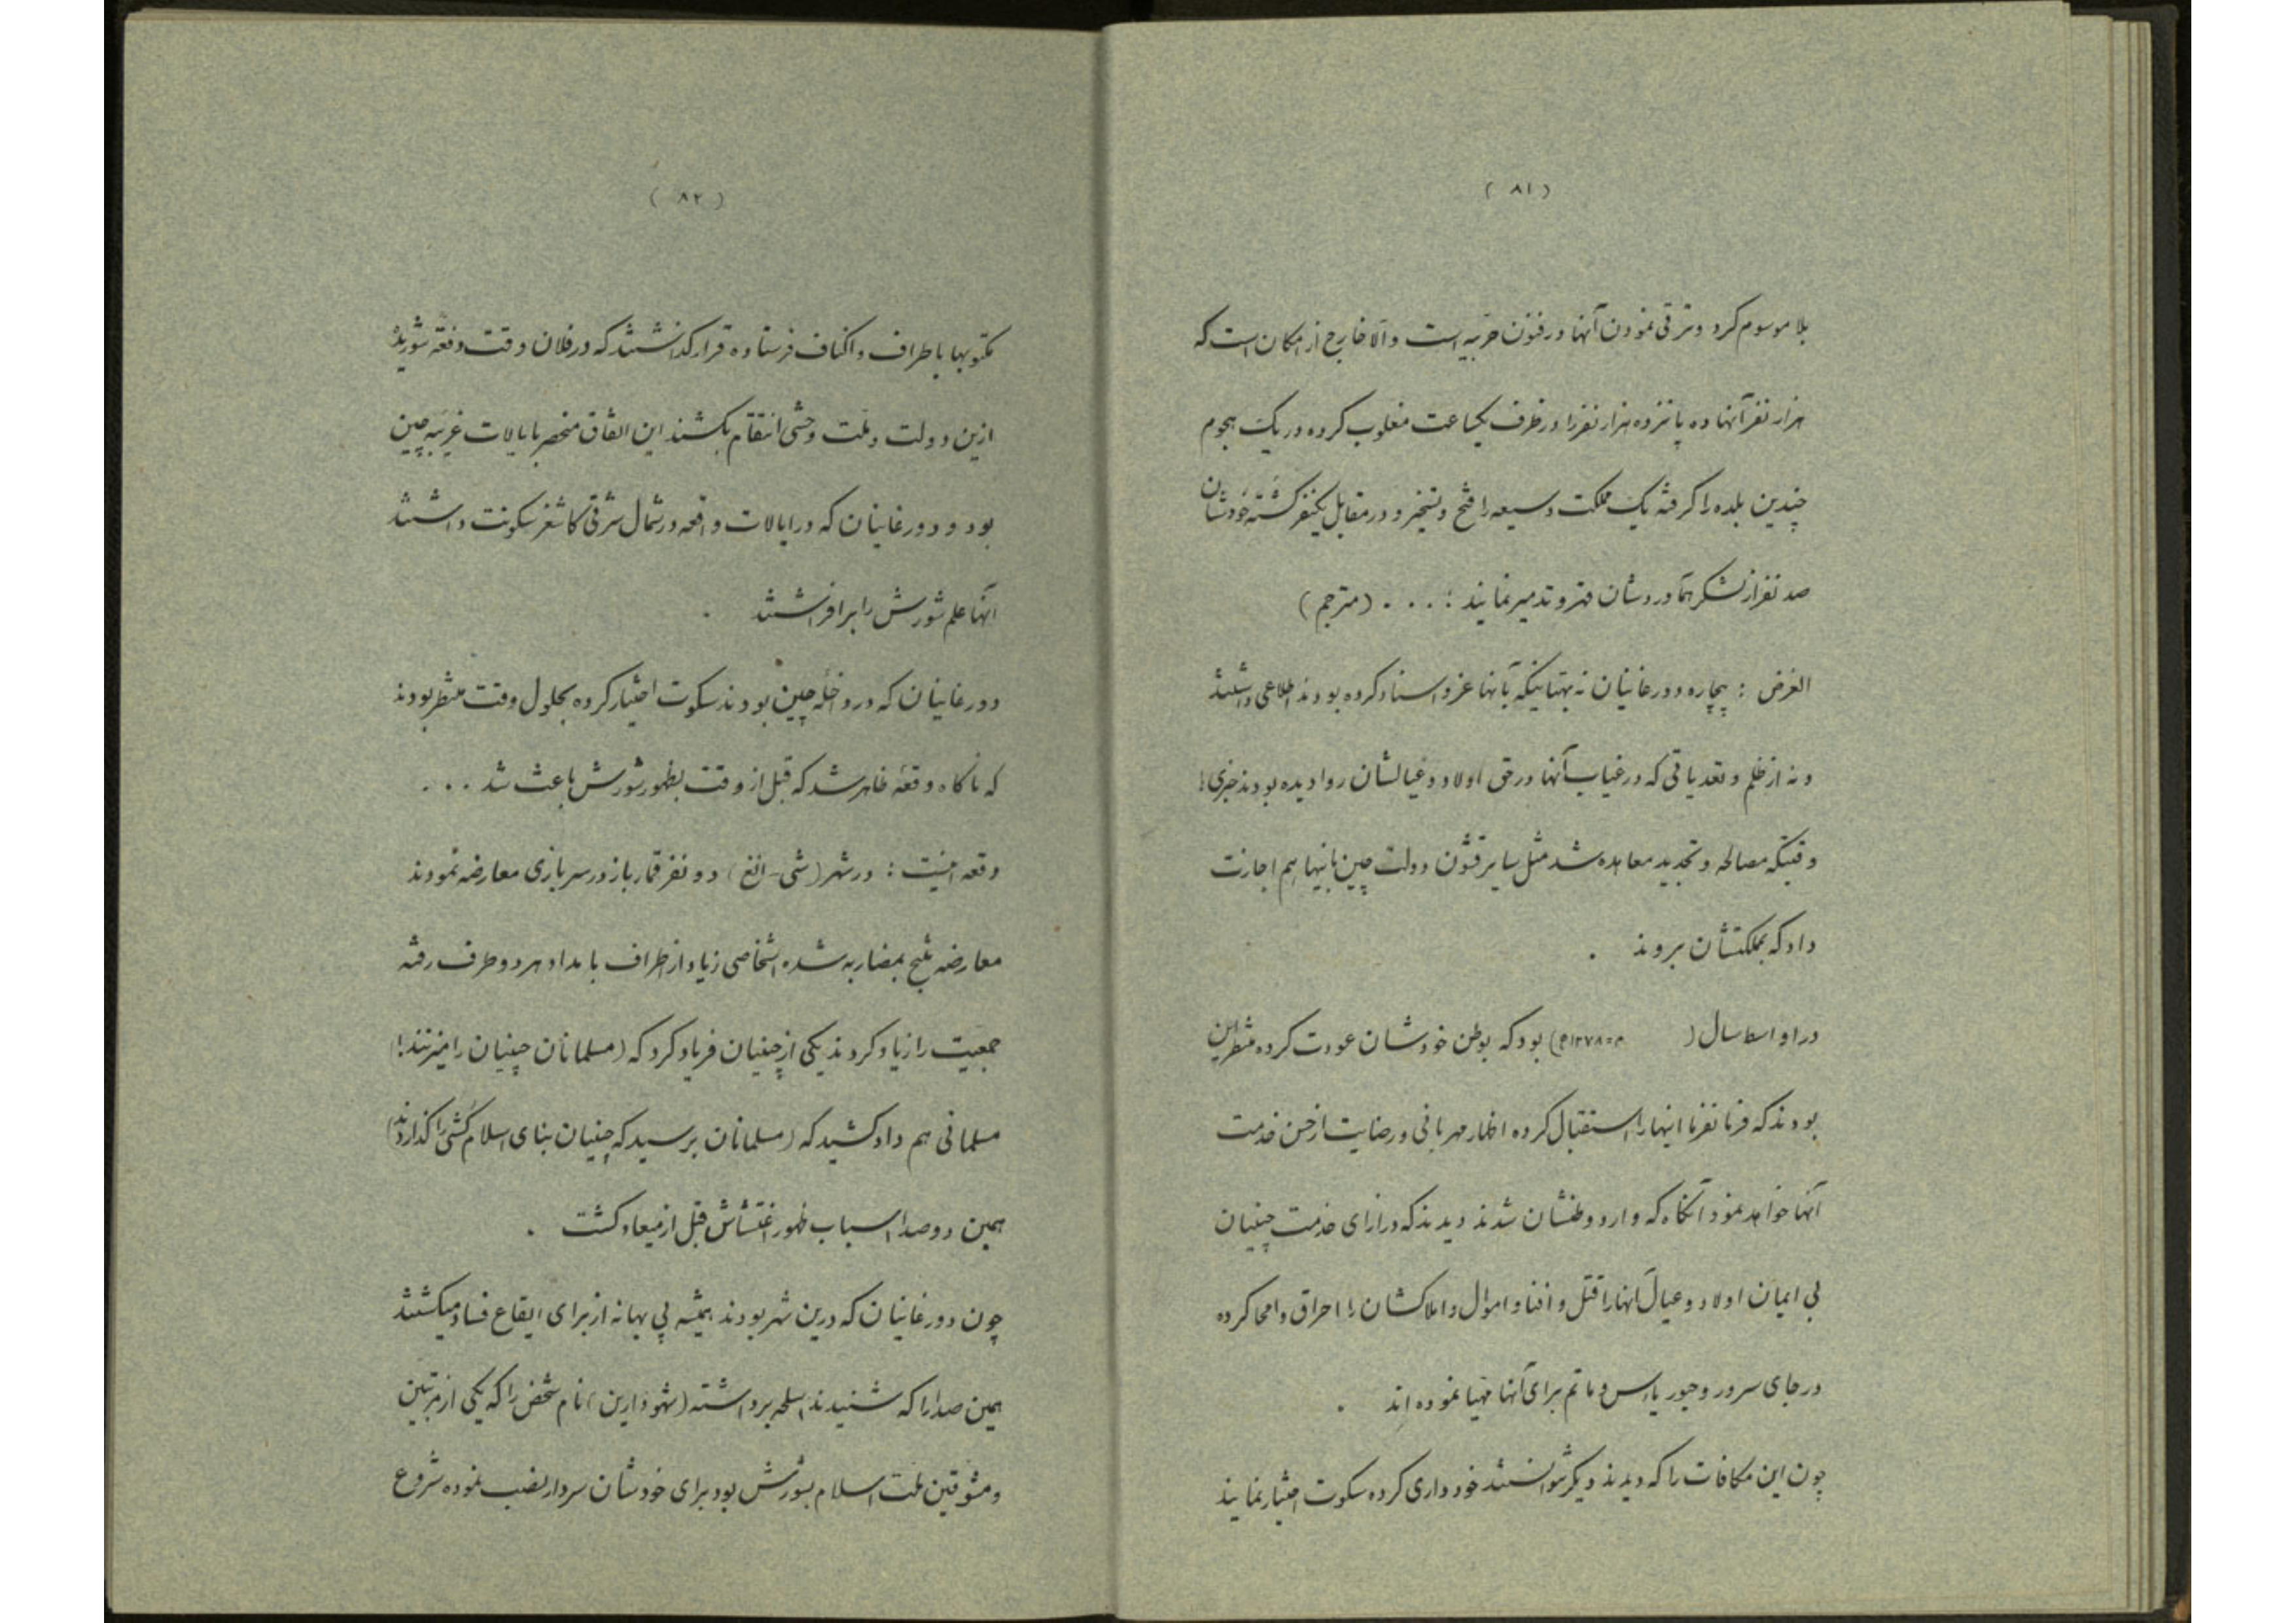 ( ۸۱ )
بلا موسوم کرد و ترقی نمودن آنها در فنون حربیه است والا خارج از امکان است که
هزار نفر آنها ده پانزده هزار نفر را در ظرف یکساعت مغلوب کرده در یک هجوم
چندین بلده را گرفته یک مملکت وسیعه را فتح و تسخیر و در مقابل یکنفر کشته خودشان
صد نفر از لشکر هم‌آوردشان قهر و تدمیر نمایند ؛ . . . (مترجم)
الغرض : بیچاره دورغانیان نه بهتانیکه بآنها عزو و اسناد کرده بودند اطلاعی داشتند
و نه از ظلم و تعدیاتی که در غیاب آنها در حق اولاد و عیالشان روا دیده بودند خبری !
وقتیکه مصالحه و تجدید معاهده شد مثل سایر قشون دولت چین باینها هم اجازت
داد که بمملکتشان بروند .
در اواسط سال ( ۱۲۷۸ه م) بود که بوطن خودشان عودت کرده منتظر این
بودند که فرمانفرما اینها را استقبال کرده اظهار مهربانی و رضایت از حسن خدمت
آنها خواهد نمود آنگاه که وارد وطنشان شدند دیدند که در ازای خدمت چینیان
بی ایمان اولاد و عیال آنها را قتل و افنا و اموال و املاکشان را احراق و امحا کرده
در جای سرور و حبور یأس و ماتم برای آنها مهیا نموده اند .
چون این مکافات را که دیدند دیگر نتوانستند خودداری کرده سکوت اختیار نمایند
( ۸۲ )
مکتوبها باطراف و اکناف فرستاده قرار گذاشتند که در فلان وقت دفعة شوریده
ازین دولت و ملت وحشی انتقام بکشند این اتفاق منحصر بایالات غربیه چین
بود و دورغانیان که در ایالات واقعه در شمال شرقی کاشغر سکونت داشتند
آنها علم شورش را برافراشتند .
دورغانیان که در داخله چین بودند سکوت اختیار کرده بحلول وقت منتظر بودند
که ناگاه وقعهٔ ظاهر شد که قبل از وقت بظهور شورش باعث شد . . .
وقعه اینست : در شهر (شی-انغ) دو نفر قمارباز در سر بازی معارضه نمودند
معارضه منتج بمضاربه شده اشخاصی زیاد از اطراف بامداد هر دو طرف رفته
جمعیت را زیاد کردند یکی از چینیان فریاد کرد که (مسلمانان چینیان را میزنند !)
مسلمانی هم داد کشید که (مسلمانان برسید که چینیان بنای اسلام کشی را گذاردند)
همین دو صدا اسباب ظهور اغتشاش قبل از میعاد گشت .
چون دورغانیان که درین شهر بودند همیشه پی بهانه از برای ایقاع فساد میگشتند
همین صدا را که شنیدند اسلحه برداشته (شهودارین) نام شخص را که یکی از مرتبین
و مشوقین ملت اسلام بشورش بود برای خودشان سردار نصب نموده شروع